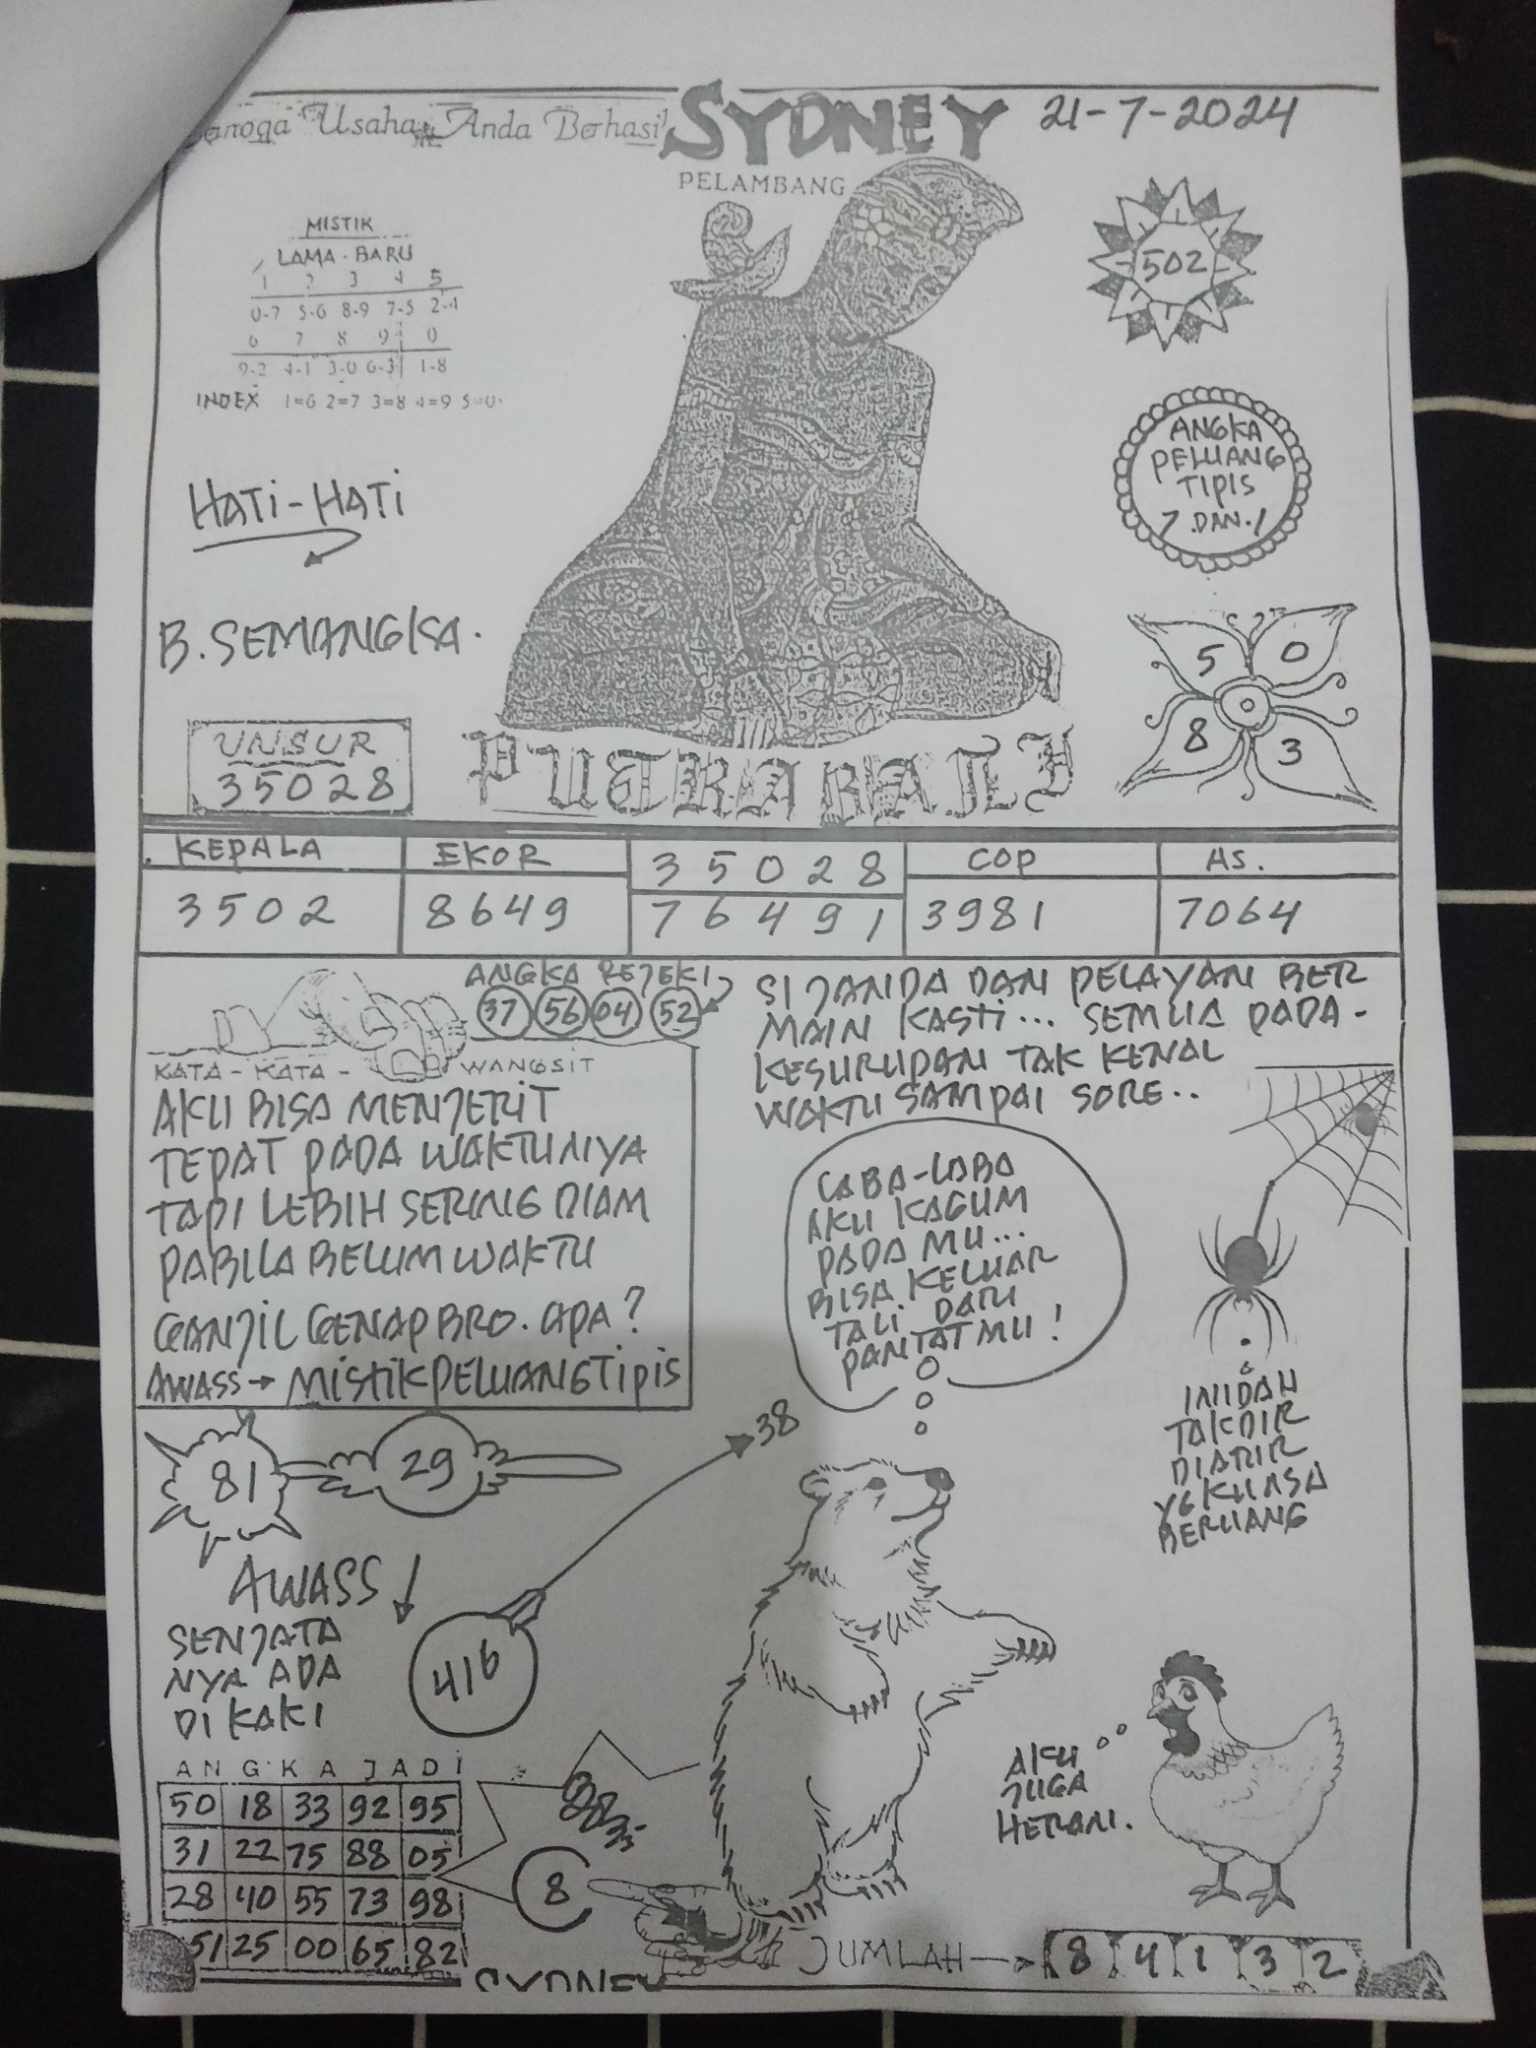 Usaha Anda Berhasil
SYDNEY
21-7-2024
PELAMBANG
MISTIK
LAMA - BARU
1 2 3 4 5
0-7 5-6 8-9 7-5 2-4
6 7 8 9 0
9-2 4-1 3-0 6-3 1-8
INDEX 1=6 2=7 3=8 4=9 5=0
502
ANGKA
PELUANG
TIPIS
7 DAN 1
HATI-HATI
B. SEMANGKA.
5 0
0
8 3
UNSUR
35028
PUTRA BALI
KEPALA EKOR 35028 COP AS.
3502 8649 76491 3981 7064
ANGKA REJEKI
37 56 04 52
KATA - KATA - WANGSIT
AKU BISA MENJERIT
TEPAT PADA WAKTUNYA
TAPI LEBIH SERING DIAM
PABILA BELUM WAKTU
GANJIL GENAP BRO. APA?
AWASS → MISTIK PELUANG TIPIS
SI JANDA DAN PELAYAN BER
MAIN KASTI... SEMUA PADA-
KESURUPAN TAK KENAL
WAKTU SAMPAI SORE..
LABA-LABA
AKU KAGUM
PADA MU...
BISA KELUAR
TALI DARI
PANTATMU!
INIDAH
TAKDIR
DIATIR
YG KUASA
BERUANG
81 29
38
AWASS
SENJATA
NYA ADA
DI KAKI
416
AKU
JUGA
HERAN.
ANGKA JADI
50 18 33 92 95
31 22 75 88 05
28 40 55 73 98
51 25 00 65 82
8
SYDNEY
JUMLAH → 8 4 1 3 2